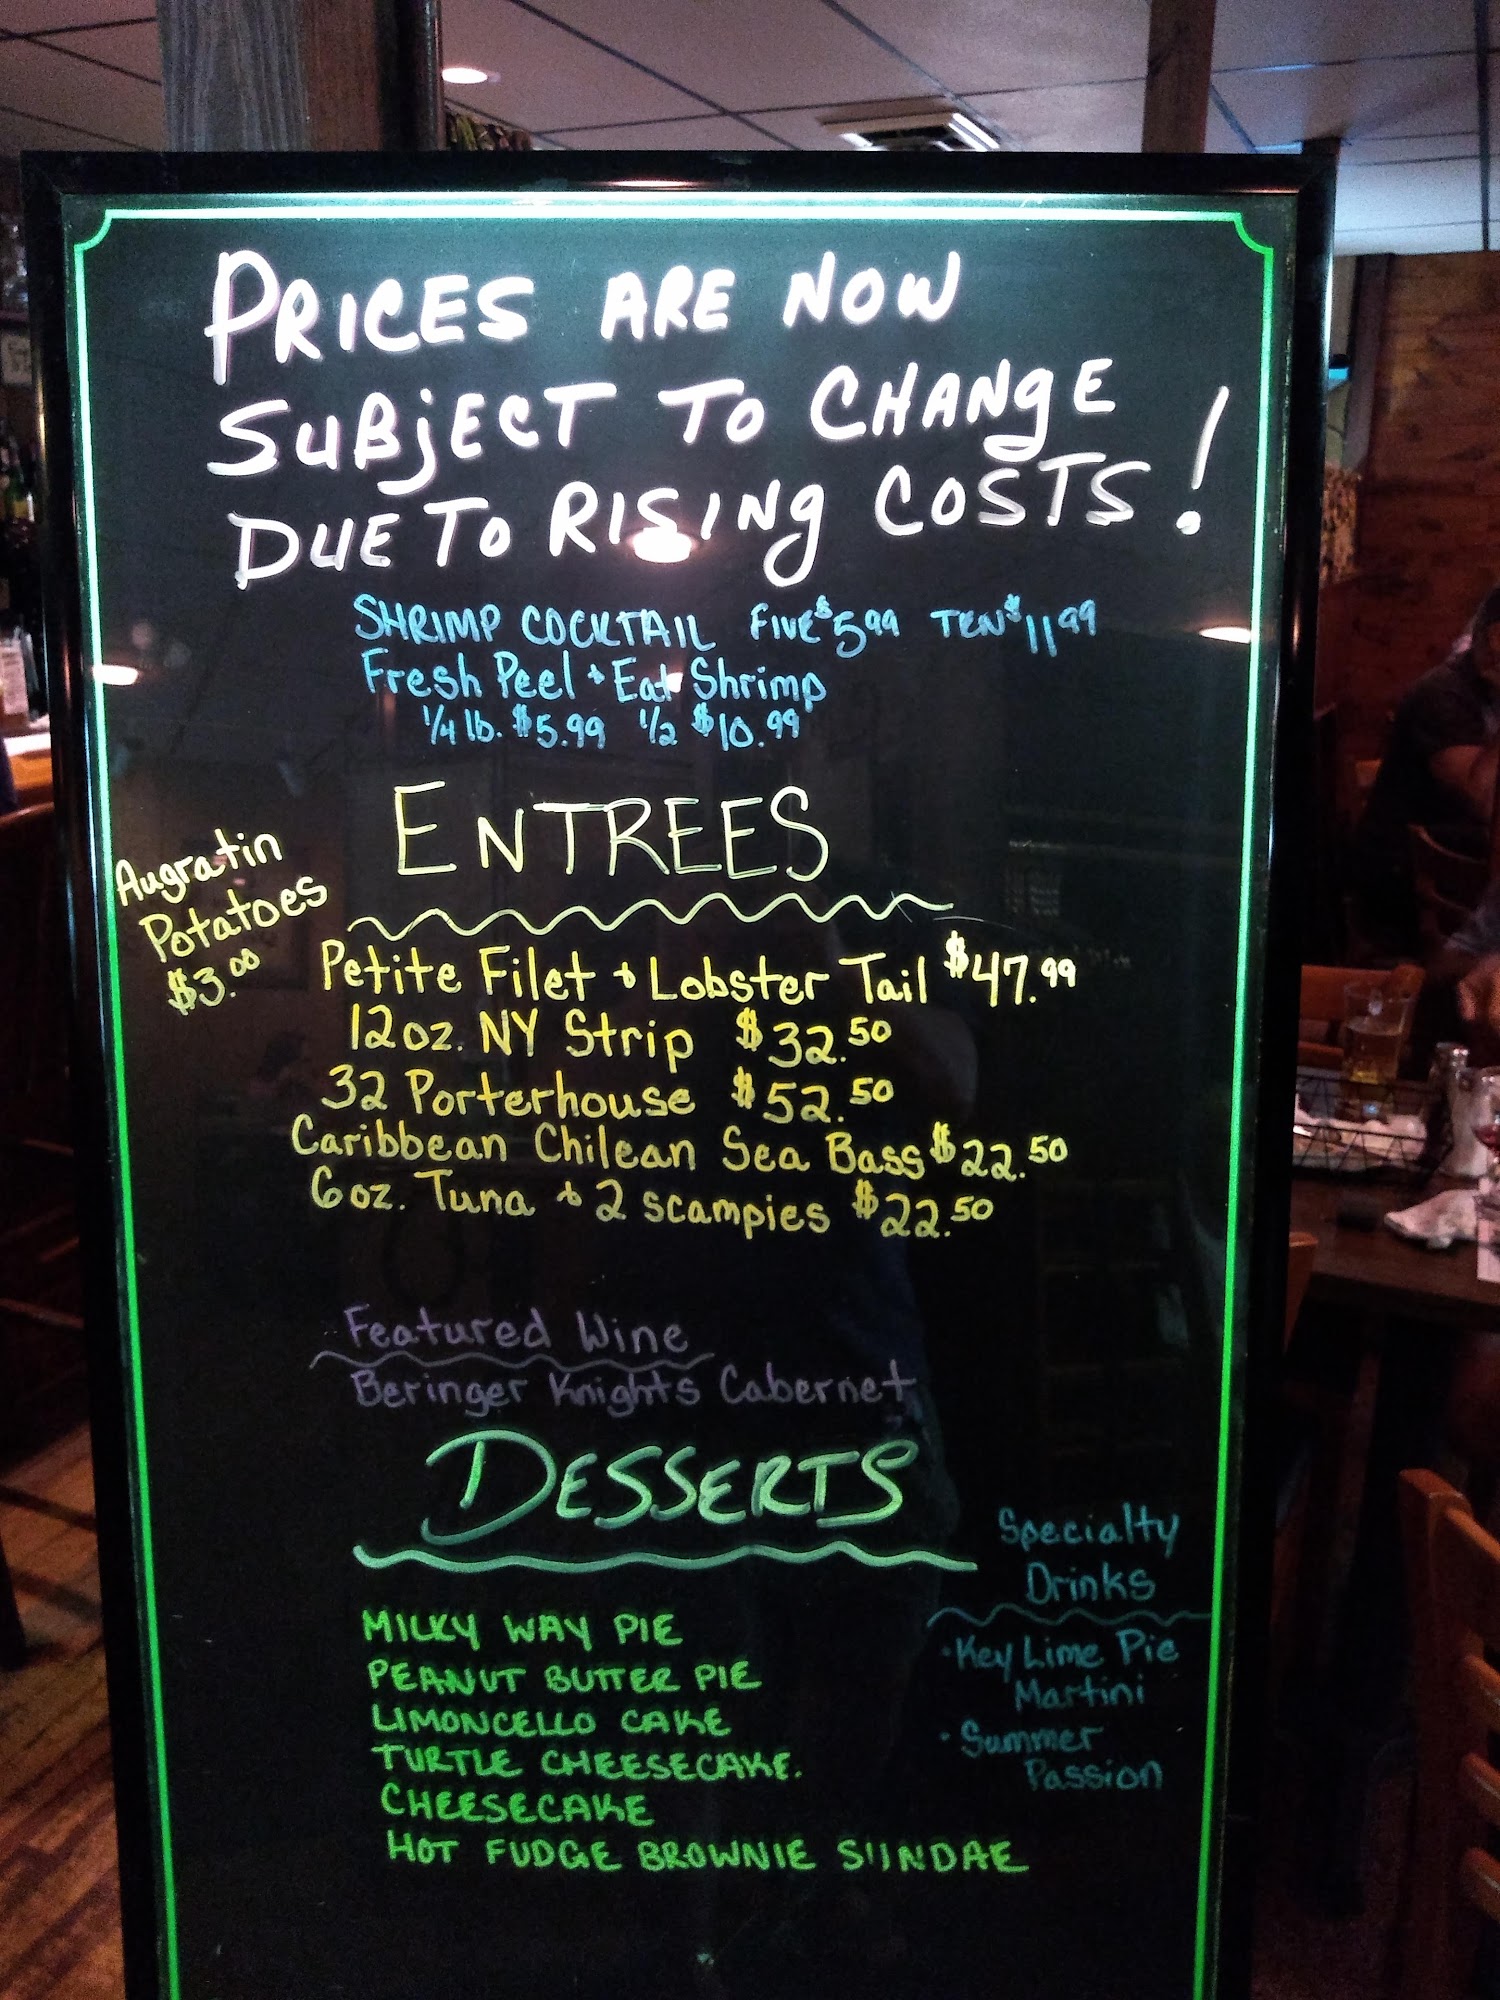 PRICES ARE NOW
SUBjECT TO CHANgE
DUE TO RISINg COSTS!
SHRIMP COCKTAIL FIVE $5.99 TEN $11.99
Fresh Peel + Eat Shrimp
1/4 lb. $5.99 1/2 $10.99
ENTREES
Augratin
Potatoes
$3.00
Petite Filet + Lobster Tail $47.99
12oz. NY Strip $32.50
32 Porterhouse $52.50
Caribbean Chilean Sea Bass $22.50
6oz. Tuna + 2 scampies $22.50
Featured Wine
Beringer Knights Cabernet
DESSERTS
MILKY WAY PIE
PEANUT BUTTER PIE
LIMONCELLO CAKE
TURTLE CHEESECAKE.
CHEESECAKE
HOT FUDGE BROWNIE SUNDAE
Specialty
Drinks
·Key Lime Pie
Martini
·Summer
Passion